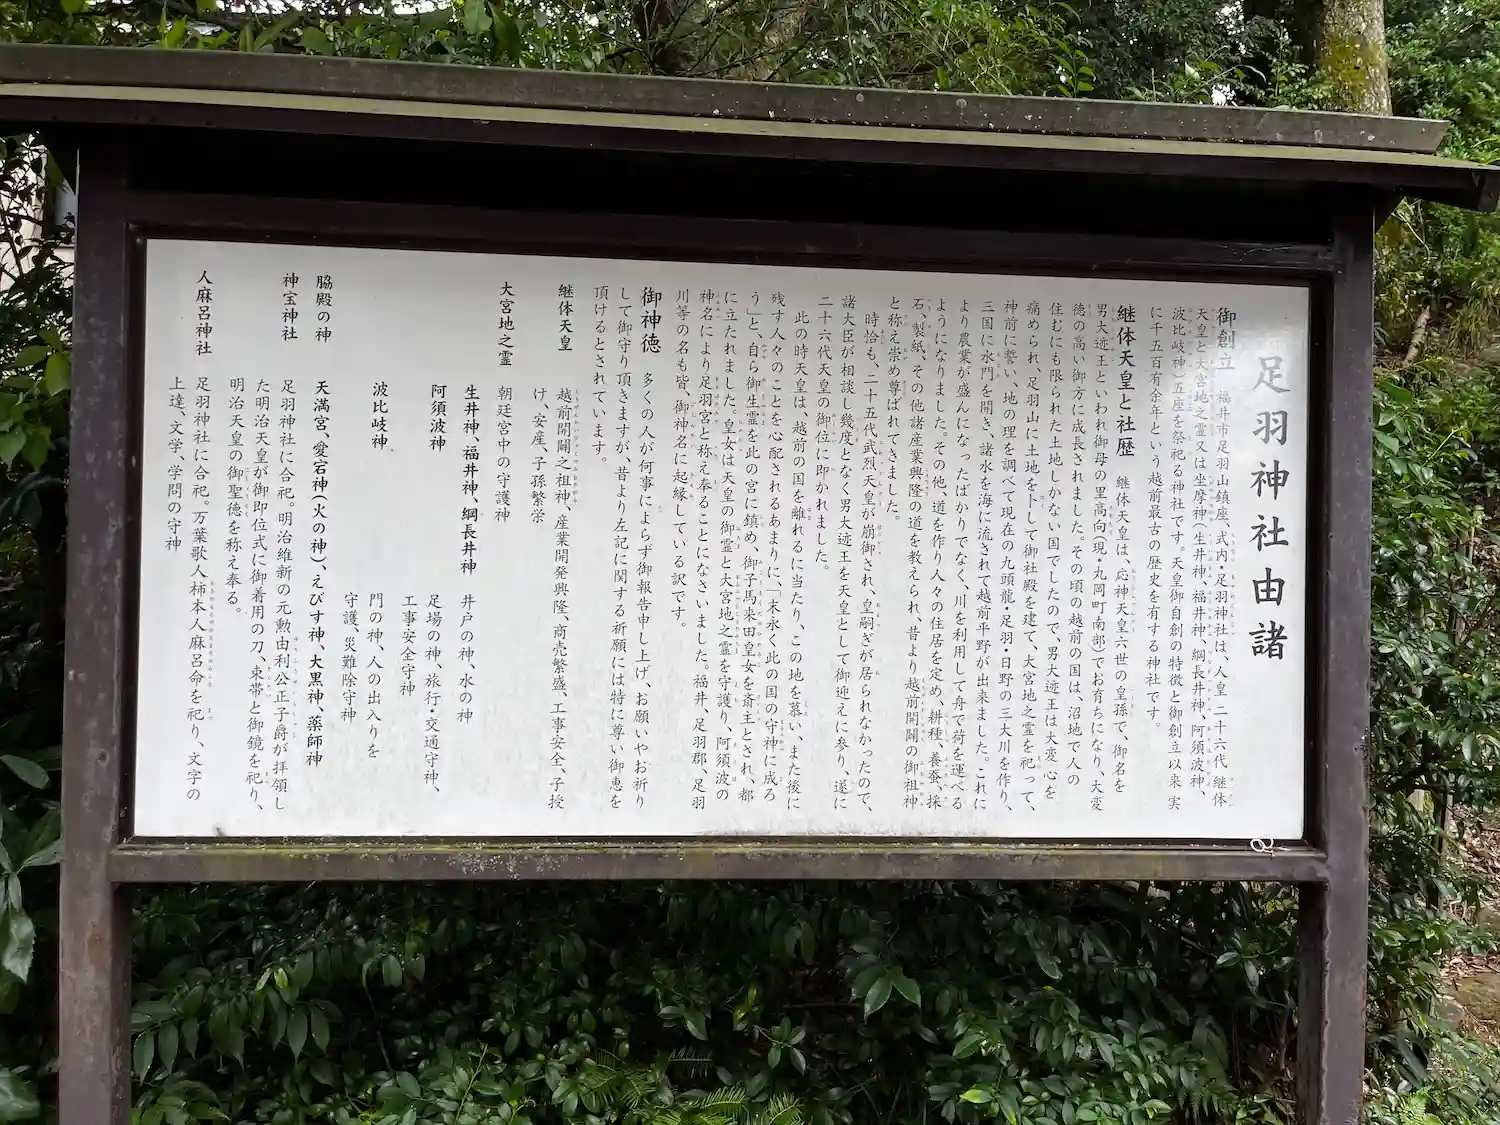 足羽神社由諸
御創立　福井市足羽山鎮座、式内・足羽神社は、人皇 二十六代 継体
天皇と大宮地之霊又は坐摩神(生井神、福井神、綱長井神、阿須波神、
波比岐神)五座を祭祀る神社です。天皇御自創の特徴と御創立以来 実
に千五百有余年という越前最古の歴史を有する神社です。
継体天皇と社歴　継体天皇は、応神天皇六世の皇孫で、御名を
男大迹王といわれ御母の里高向(現・丸岡町南部)でお育ちになり、大変
徳の高い御方に成長されました。その頃の越前の国は、沼地で人の
住むにも限られた土地しかない国でしたので、男大迹王は大変心を
痛められ、足羽山に土地を卜して御社殿を建て、大宮地之霊を祀って、
神前に誓い、地の理を調べて現在の九頭龍・足羽・日野の三大川を作り、
三国に水門を開き、諸水を海に流されて越前平野が出来ました。これに
より農業が盛んになったばかりでなく、川を利用して舟で荷を運べる
ようになりました。その他、道を作り人々の住居を定め、耕種、養蚕、採
石、製紙、その他諸産業興隆の道を教えられ、昔より越前開闢の御祖神
と称え崇め尊ばれてきました。
時恰も、二十五代武烈天皇が崩御され、皇嗣ぎが居られなかったので、
諸大臣が相談し幾度となく男大迹王を天皇として御迎えに参り、遂に
二十六代天皇の御位に即かれました。
此の時天皇は、越前の国を離れるに当たり、この地を慕い、また後に
残す人々のことを心配されるあまりに、「末永く此の国の守神に成ろ
う」と、自ら御生霊を此の宮に鎮め、御子馬来田皇女を斎王とされ、都
に立たれました。皇女は天皇の御霊と大宮地之霊を守護り、阿須波の
神名により足羽宮と称え奉ることになさいました。福井、足羽郡、足羽
川等の名も皆、御神名に起縁している訳です。
御神徳　多くの人が何事によらず御報告申し上げ、お願いやお祈り
して御守り頂きますが、昔より左記に関する祈願には特に尊い御恵を
頂けるとされています。
継体天皇　越前開闢之祖神、産業開発興隆、商売繁盛、工事安全、子授
け、安産、子孫繁栄
大宮地之霊　朝廷宮中の守護神
生井神、福井神、綱長井神　井戸の神、水の神
阿須波神　足場の神、旅行・交通守神、
工事安全守神
波比岐神　門の神、人の出入りを
守護、災難除守神
脇殿の神　天満宮、愛宕神(火の神)、えびす神、大黒神、薬師神
神宝神社　足羽神社に合祀。明治維新の元勲由利公正子爵が拝領し
た明治天皇が御即位式に御着用の刀、束帯と御鏡を祀り、
明治天皇の御聖徳を称え奉る。
人麻呂神社　足羽神社に合祀。万葉歌人柿本人麻呂命を祀り、文字の
上達、文学、学問の守神